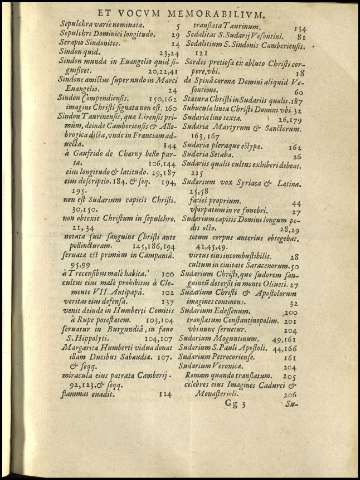 ET VOCVM MEMORABILIVM.
Sepulchra variè nominata. 5
Sepulchri Dominici longitudo. 29
Serapio Sindonites. 24
Sindon quid. 23,24
Sindon munda in Euangelio quid significet. 20,22,41
Sindone amictus super nudo in Marci
Euangelio. 24
Sindon Compendiensis. 150,162
imagini Christi signata non est. 160
Sindon Taurinensis, quæ Firensi primùm, deinde Camberiensis & Allobrogica dicta, vnde in Franciam aduecta. 144
à Gaufrido de Charny bello parta. 106,144
eius longitudo & latitudo. 29,187
eius descriptio. 184. & seq. 194,
195.
non est Sudarium capitis Christi.
30,150.
non obtexit Christum in sepulchro.
21,34
notata fuit sanguine Christi ante
pollincturam. 125,186,194
seruata est primùm in Campania.
95,99
à Trecensibus malè habita. 100
cultus eius malè prohibitus à Clemente VII. Antipapa. 102
veritas eius defensa. 137
vanè deinde in Humberti Comitis
à Rupe potestatem. 103,104
seruatur in Burgundia, in fano
S. Hippolyti. 104,107
Margarita Humberti vidua donat
illam Ducibus Sabaudiæ. 107.
& seqq.
miracula eius patrata Camberij.
92,123,& seqq.
flammas euadit. 124
translata Taurinum. 134
Sodalitas S. Sudarij Vesontini. 82
Sodalitium S. Sindonis Camberiensis.
121
Sordes pretiosæ ex abluto Christi corpore, vbi. 18
de Spin corona Domini aliquid Vesontione. 60
Statura Christi in Sudariis qualis. 187
Subucula linea Christi Domini vbi. 32
Sudaria lino texta. 26,179
Sudaria Martyrum & Sanctorum.
163,167
Sudaria pleraque ectypa. 162
Sudaria Setaba. 26
Sudariis qualis cultus exhiberi debeat.
225
Sudarium vox Syriaca & Latina.
25,58
faciei proprium. 44
vsurpatum in re funebri. 27
Sudarium capitis Domini longum pedes octo. 28,29
totum corpus anterius obtegebat.
42,45,49.
virtus eius incombustibilis. 28
cultum in ciuitate Saracenorum. 50
Sudarium Christi, quo sudorem sanguineum detersit in monte Oliueti. 27
Sudarium Christi & Apostolorum
imagines continens. 52
Sudarium Edessenum. 200
translatum Constantinopolim. 201
vbi nunc seruetur. 104
Sudarium Moguntinum. 49,161
Sudarium S. Pauli Apostoli. 44,166
Sudarium Petrocoriense. 161
Sudarium Veronicæ. 204
Romam quando translatum. 205
celebres eius Imagines Cadurci &
Monasterioli. 206
Gg 3
Su-